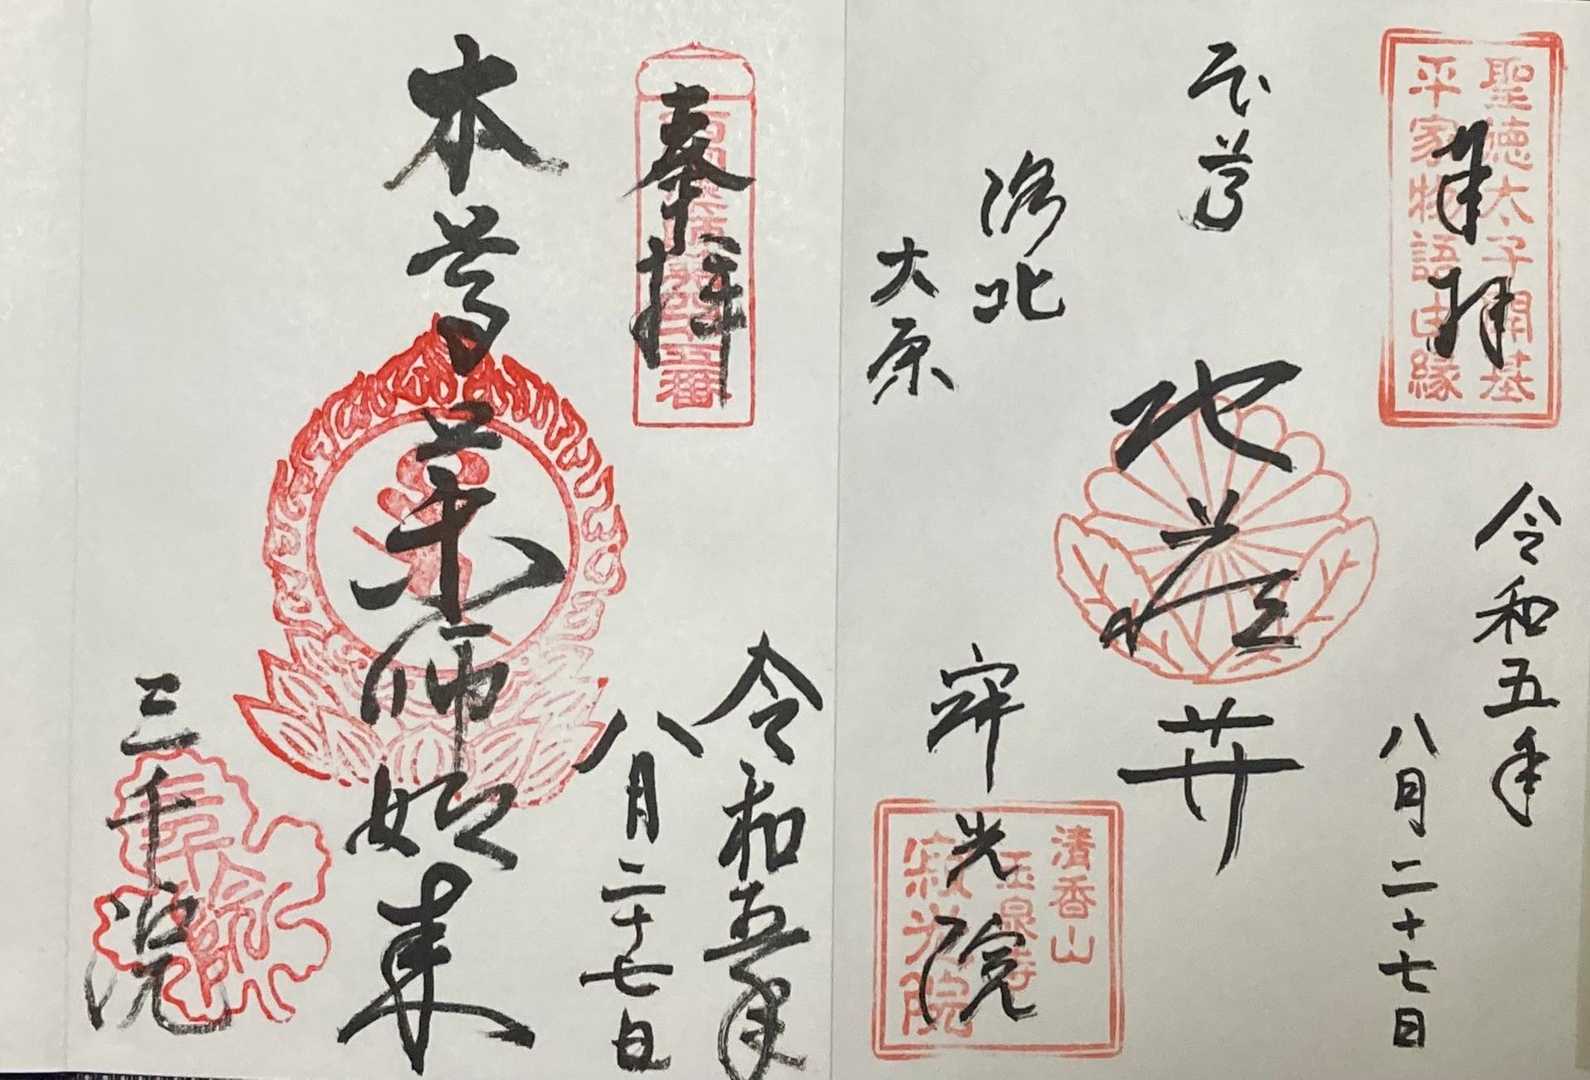 奉拝
聖徳太子開基
平家物語由縁
令和五年
八月二十七日
本尊
地蔵䒑
洛北
大原
寂光院
清香山
玉泉寺
寂光院
奉拝
令和五年
八月二十七日
本尊薬師如来
三千院